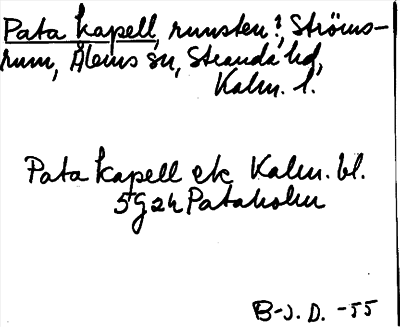 Pata kapell, runsten?, Ströms-
rum, Ålems sn, Stranda hd,
Kalm. l.
Pata kapell ek Kalm. bl.
5G2h Pataholm
B-J. D. -55